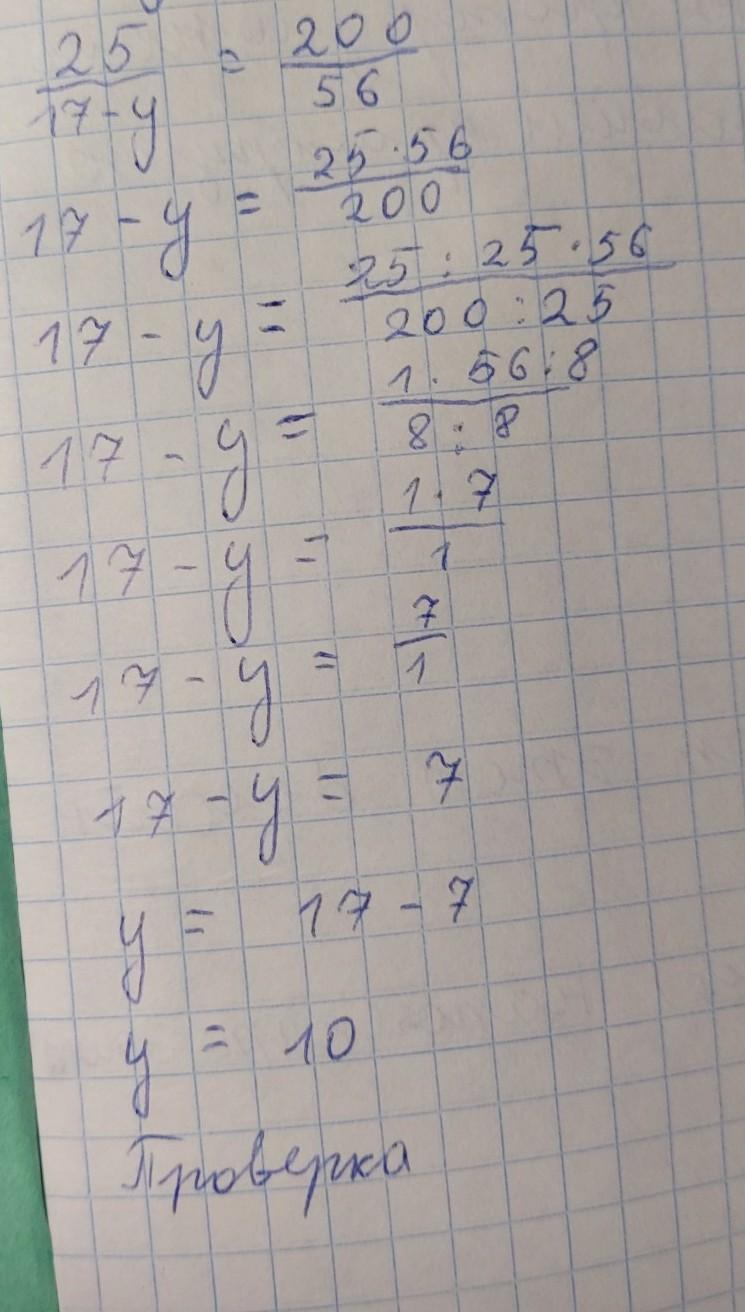 25/(17-y) = 200/56
17 - y = 25·56/200
17 - y = 25:25·56/200:25
17 - y = 1·56:8/8:8
17 - y = 1·7/1
17 - y = 7/1
17 - y = 7
y = 17 - 7
y = 10
Проверка